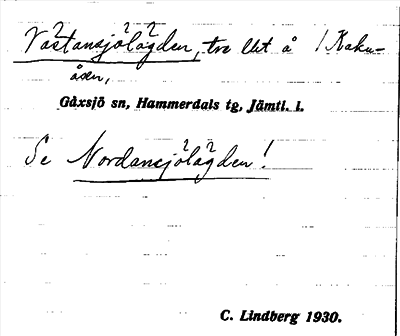 Västansjölägden, tre llet å 1 Kaku-
åsen,
Gåxsjö sn, Hammerdals tg, Jämtl. l.
Se Nordansjölägden!
C. Lindberg 1930.